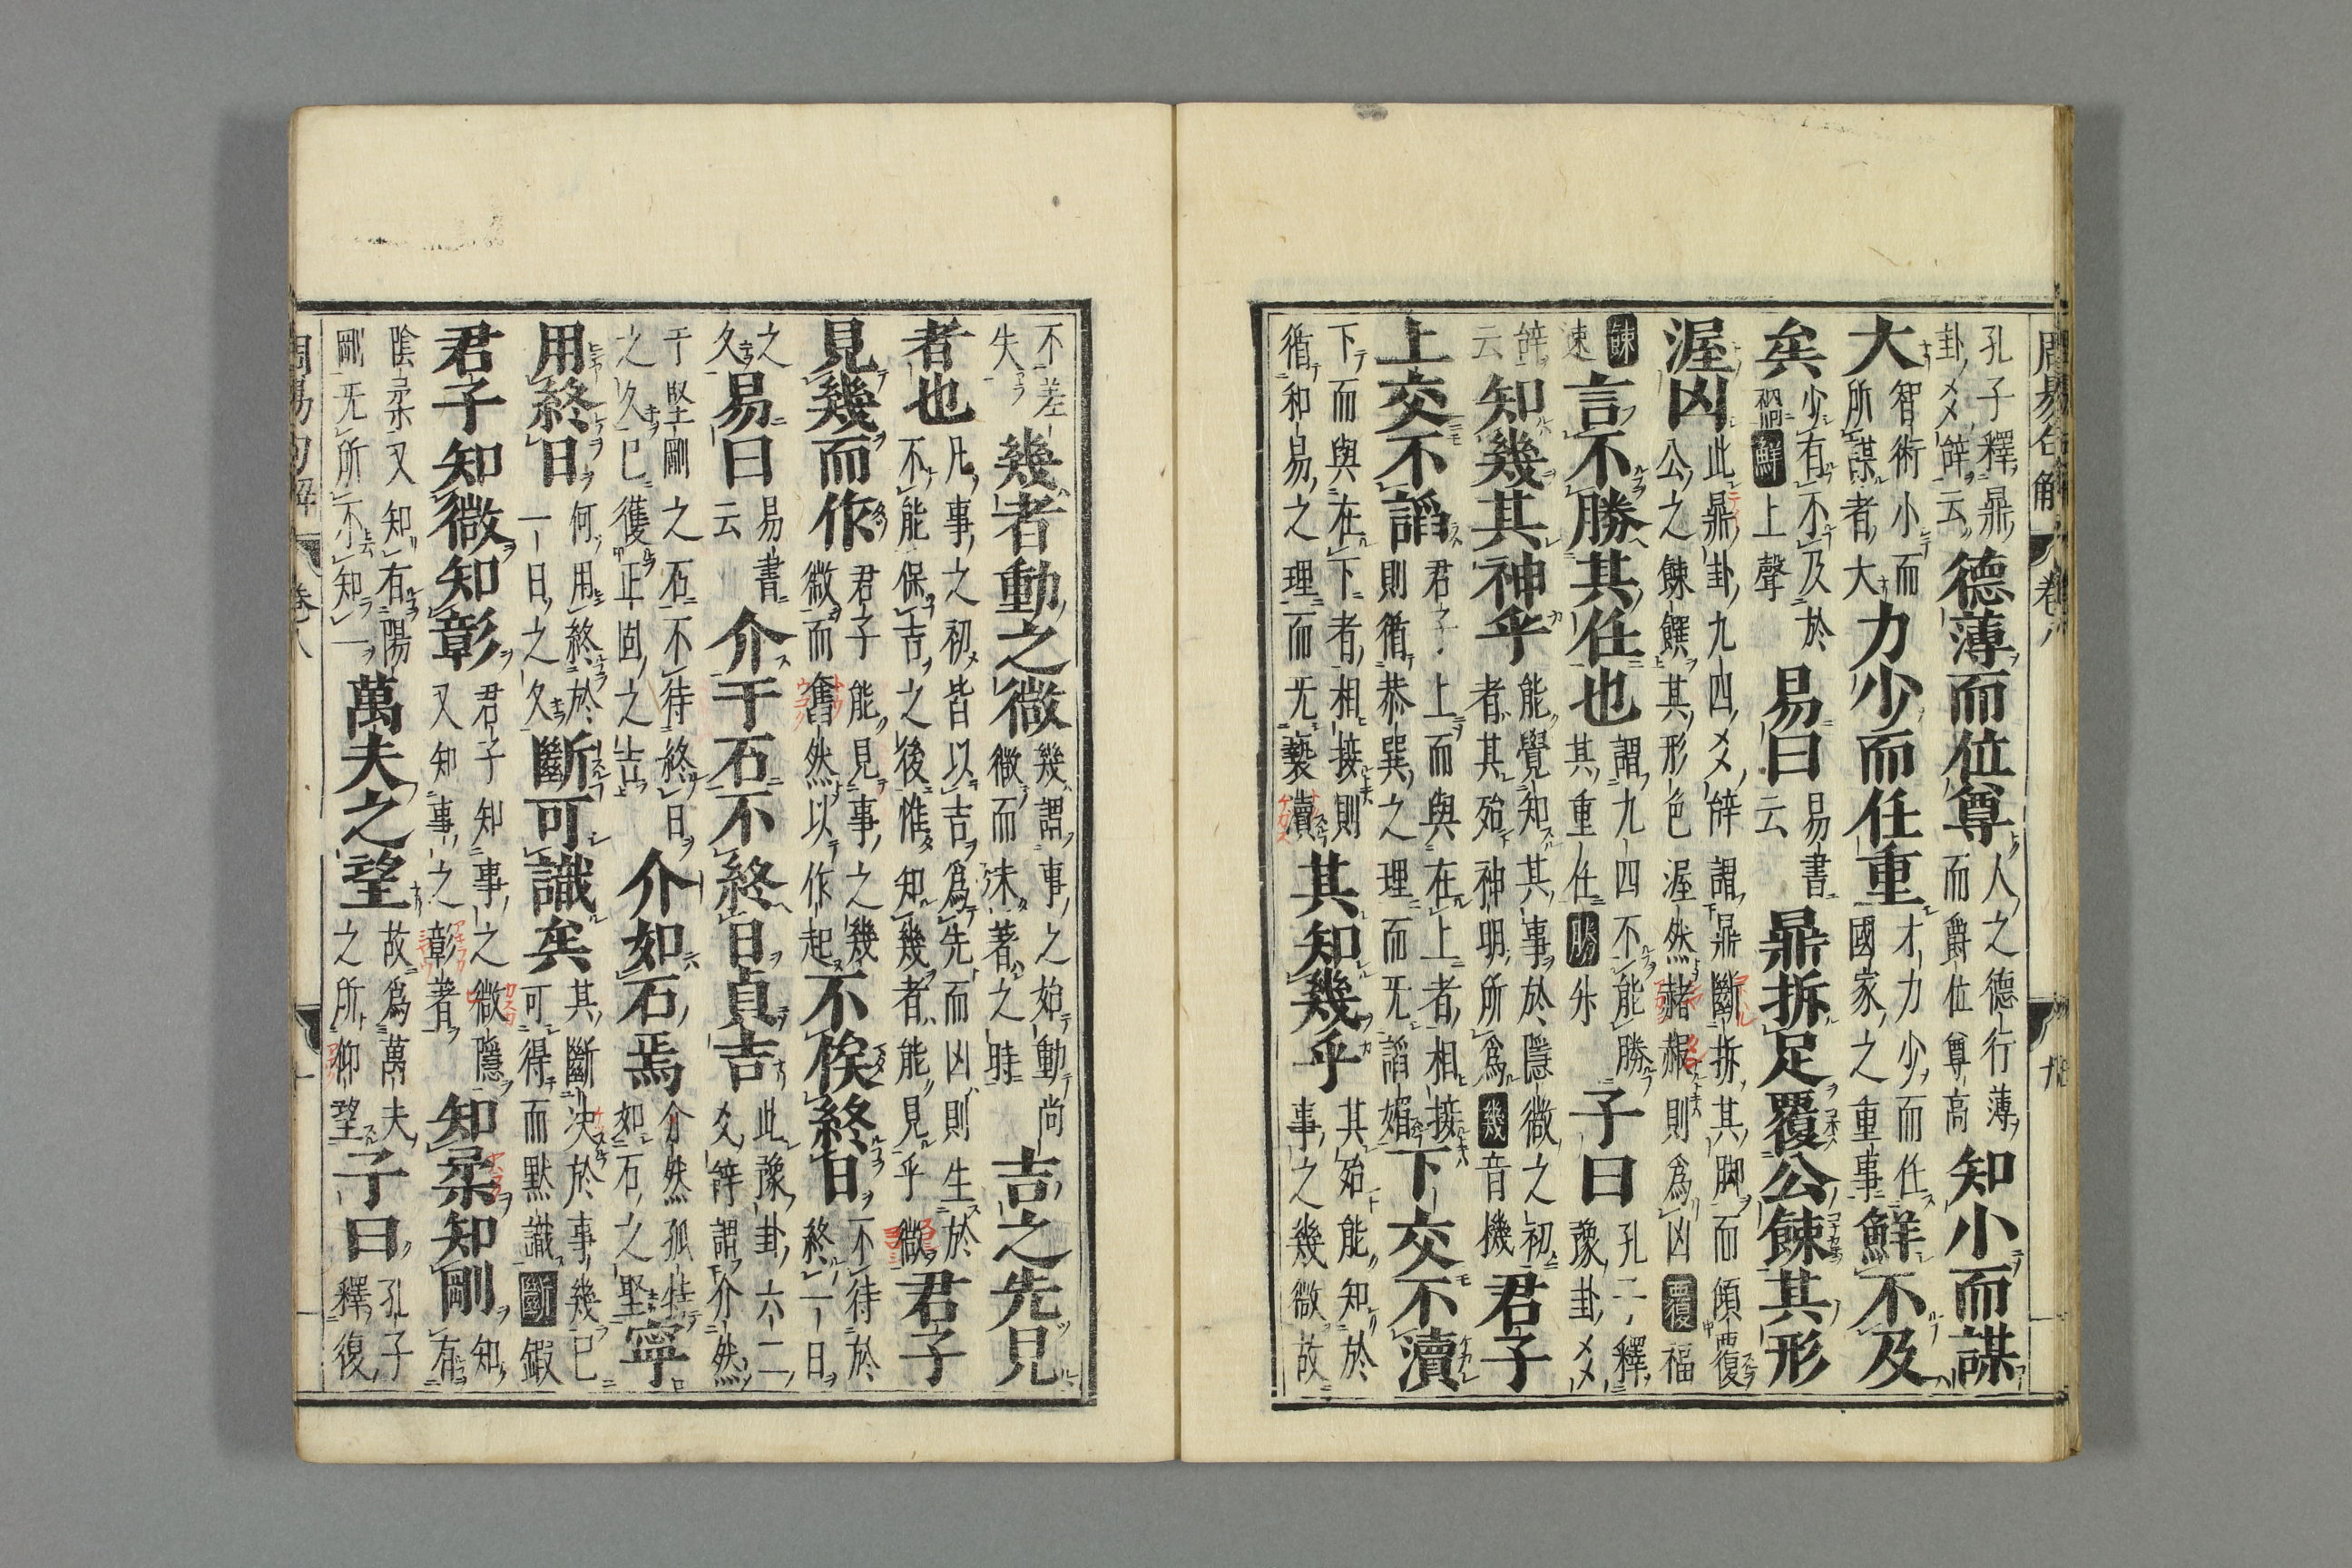 周易句解 卷八 九
孔子釋鼎卦爻辭云德薄而位尊人之德行薄而爵位尊高知小而謀
大智術小而所謀者大力少而任重才力少而任國家之重事鮮不及
矣少有不及於禍鮮上聲易曰易書云鼎拆足覆公餗其形
渥凶此鼎卦九四爻辭謂鼎斷拆其脚而傾覆公之餗饌其形色渥然赭赧則爲凶覆福
餗速言不勝其任也謂九四不能勝其重任勝升子曰孔子釋豫卦爻
辭云知幾其神乎能覺知其事於隱微之初者其殆神明所爲幾音機君子
上交不諂君子上而與在上者相接則循恭巽之理而无諂媚下交不瀆
下而與在下者相接則循和易之理而无褻瀆其知幾乎其殆能知於事之幾微故
不差失幾者動之微幾謂事之始動尚微而未著之時吉之先見
者也凡事之初皆以吉爲先而凶則生於不能保吉之後惟知幾者能見乎微君子
見幾而作君子能見事之幾微而奮然以作起不俟終日不待於終一日
之久易曰易書云介于石不終日貞吉此豫卦六二爻辭謂介然
于堅剛之石不待終日之久已獲正固之吉介如石焉介然孤特如石之堅寧
用終日何用終於一日之久斷可識矣其斷決於事幾已可得而默識斷鍜
君子知微知彰君子知事之微隱又知事之彰著知柔知剛知有
陰柔又知有陽剛无所不知萬夫之望故爲萬夫之所仰望子曰孔子釋復
周易句解 卷八 十